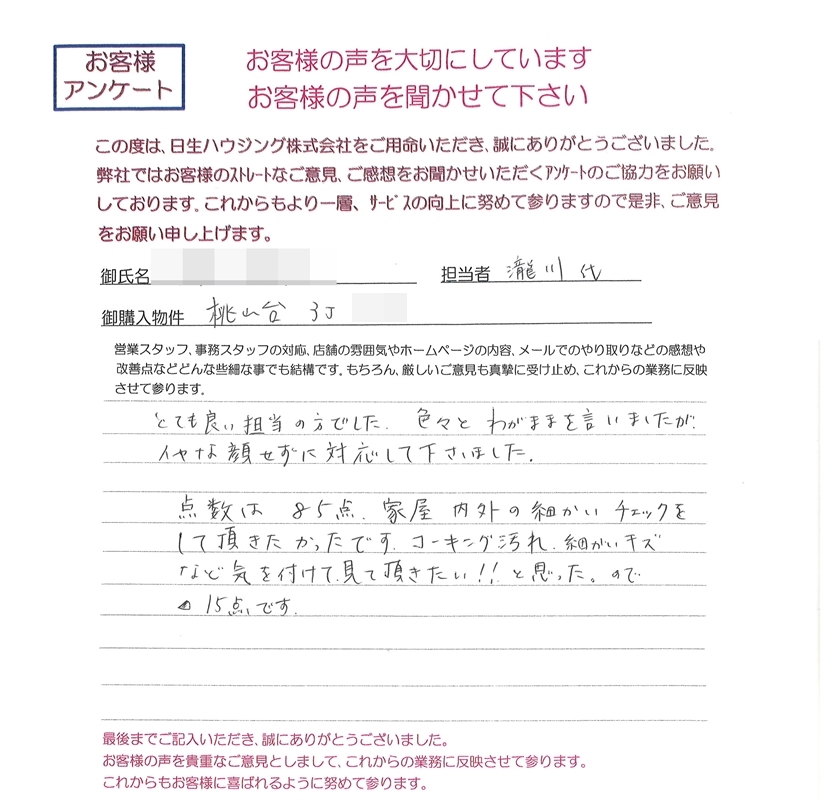 お客様
アンケート
お客様の声を大切にしています
お客様の声を聞かせて下さい
この度は、日生ハウジング株式会社をご用命いただき、誠にありがとうございました。
弊社ではお客様のｽﾄﾚｰﾄなご意見、ご感想をお聞かせいただくｱﾝｹｰﾄのご協力をお願い
しております。これからもより一層、ｻｰﾋﾞｽの向上に努めて参りますので是非、ご意見
をお願い申し上げます。
御氏名
担当者 瀧川 代
御購入物件 桃山台 3J
営業スタッフ、事務スタッフの対応、店舗の雰囲気やホームページの内容、メールでのやり取りなどの感想や
改善点などどんな些細な事でも結構です。もちろん、厳しいご意見も真摯に受け止め、これからの業務に反映
させて参ります。
とても良い担当の方でした。色々とわがままを言いましたが、
イヤな顔せずに対応して下さいました。
点数は 85点、家屋内外の細かいチェックを
して頂きたかったです。コーキング汚れ、細かいキズ
など気を付けて、見て頂きたい!!と思った。ので
15点です。
最後までご記入いただき、誠にありがとうございました。
お客様の声を貴重なご意見としまして、これからの業務に反映させて参ります。
これからもお客様に喜ばれるように努めて参ります。